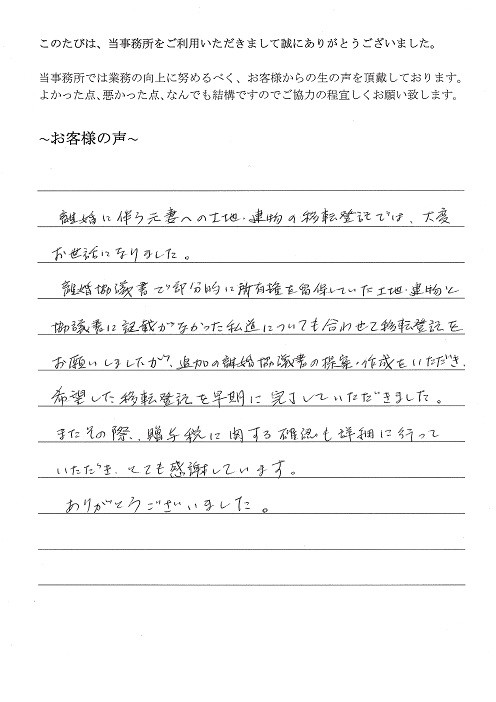 このたびは、当事務所をご利用いただきまして誠にありがとうございました。
当事務所では業務の向上に努めるべく、お客様からの生の声を頂戴しております。
よかった点、悪かった点、なんでも結構ですのでご協力の程宜しくお願い致します。
~お客様の声~
離婚に伴う元妻への土地・建物の移転登記では、大変
お世話になりました。
離婚協議書で部分的に所有権を留保していた土地・建物と
協議書に記載がなかった私道についても合わせて移転登記を
お願いしましたが、追加の離婚協議書の提案・作成をいただき、
希望した移転登記を早期に完了していただきました。
またその際、贈与税に関する確認も詳細に行って
いただき、とても感謝しています。
ありがとうございました。